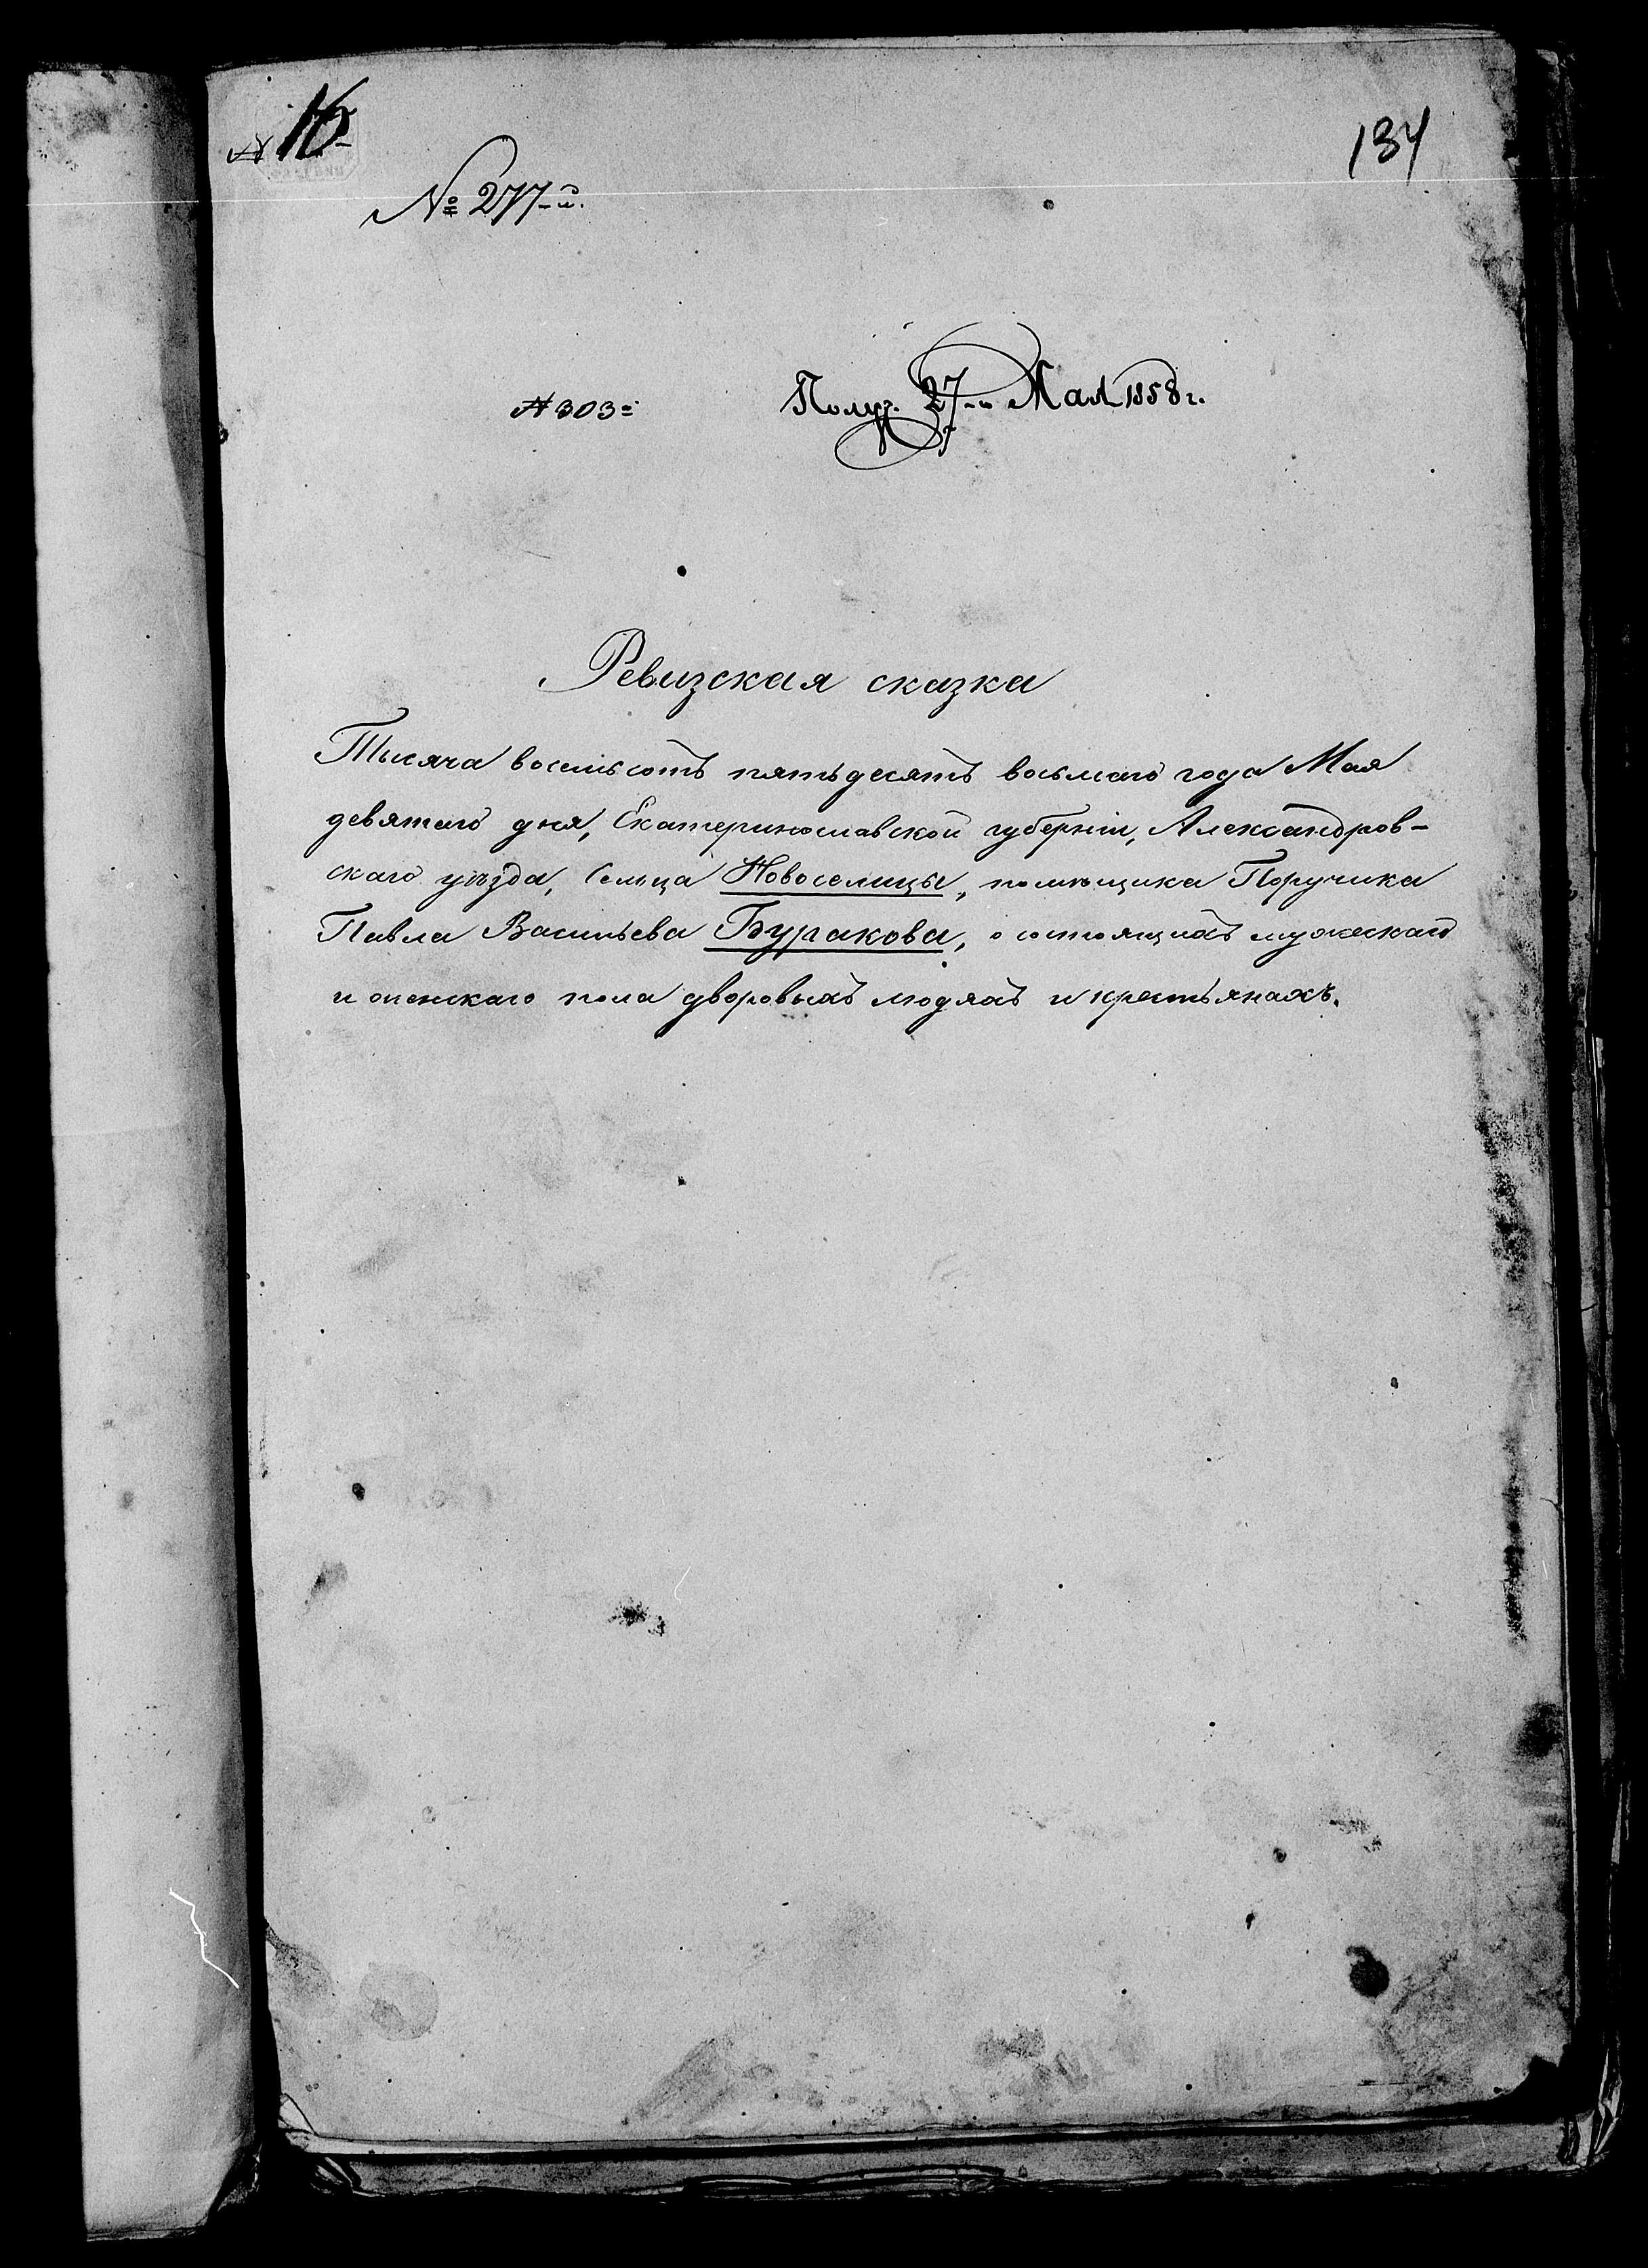 № 16
134
№ 277-й.
№ 303=
Получ. 27-го Мая 1858 г.
Ревизская сказка
Тысяча восемьсотъ пятьдесятъ восьмаго года Мая
девятаго дня, Екатеринославской губерніи, Александров-
скаго уѣзда, Сельца Новоселицы, помѣщика Поручика
Павла Васильева Буракова, о состоящихъ мужескаго
и женскаго пола дворовыхъ людяхъ и крестьянахъ.